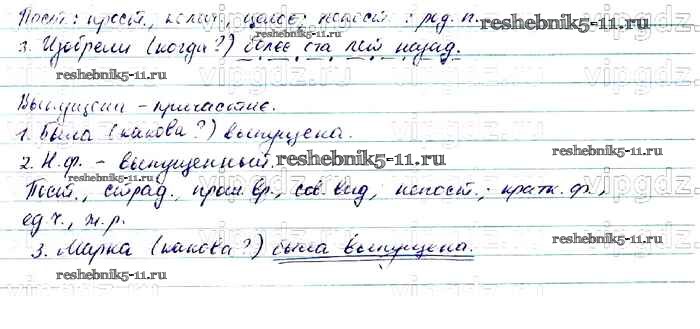 Пост.: прост., колич., целое; непост.: род. п.
reshebnik5-11.ru
3. Изобрели (когда?) более ста лет назад.
reshebnik5-11.ru reshebnik5-11.ru
Выпущена – причастие.
1. Была (какова?) выпущена.
reshebnik5-11.ru
2. Н.ф. – выпущенный.
reshebnik5-11.ru
Пост., страд., прош. вр., сов. вид; непост.: кратк. ф.,
ед. ч., ж. р.
reshebnik5-11.ru
3. Марка (какова?) была выпущена.
reshebnik5-11.ru